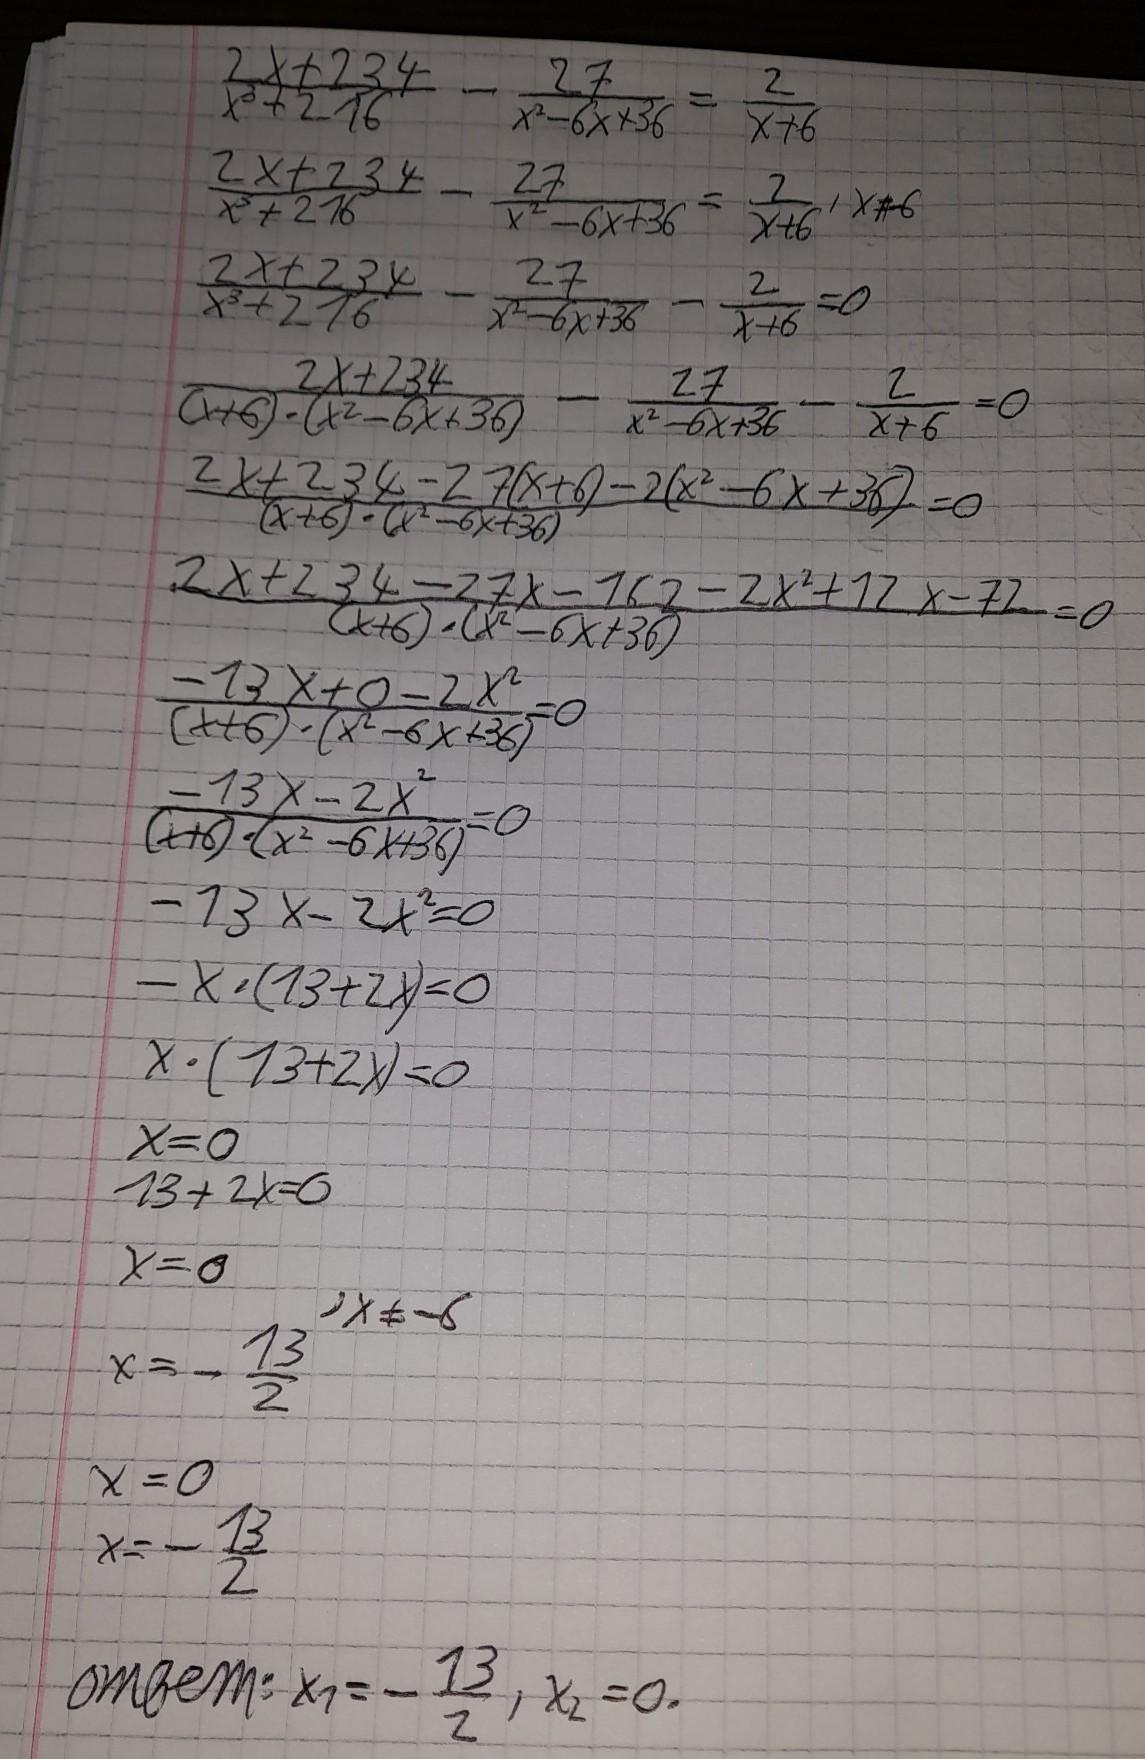 (2x+234)/(x³+216) − 27/(x²−6x+36) = 2/(x+6)
(2x+234)/(x³+216) − 27/(x²−6x+36) = 2/(x+6), x≠-6
(2x+234)/(x³+216) − 27/(x²−6x+36) − 2/(x+6) =0
(2x+234)/((x+6)·(x²−6x+36)) − 27/(x²−6x+36) − 2/(x+6) =0
(2x+234−27(x+6)−2(x²−6x+36))/((x+6)·(x²−6x+36)) =0
(2x+234−27x−162−2x²+12x−72)/((x+6)·(x²−6x+36)) =0
(−13x+0−2x²)/((x+6)·(x²−6x+36)) =0
(−13x−2x²)/((x+6)·(x²−6x+36)) =0
−13x−2x²=0
−x·(13+2x)=0
x·(13+2x)=0
x=0
13+2x=0
x=0
, x≠−6
x=−13/2
x=0
x=−13/2
ответ: x₁=−13/2, x₂=0.